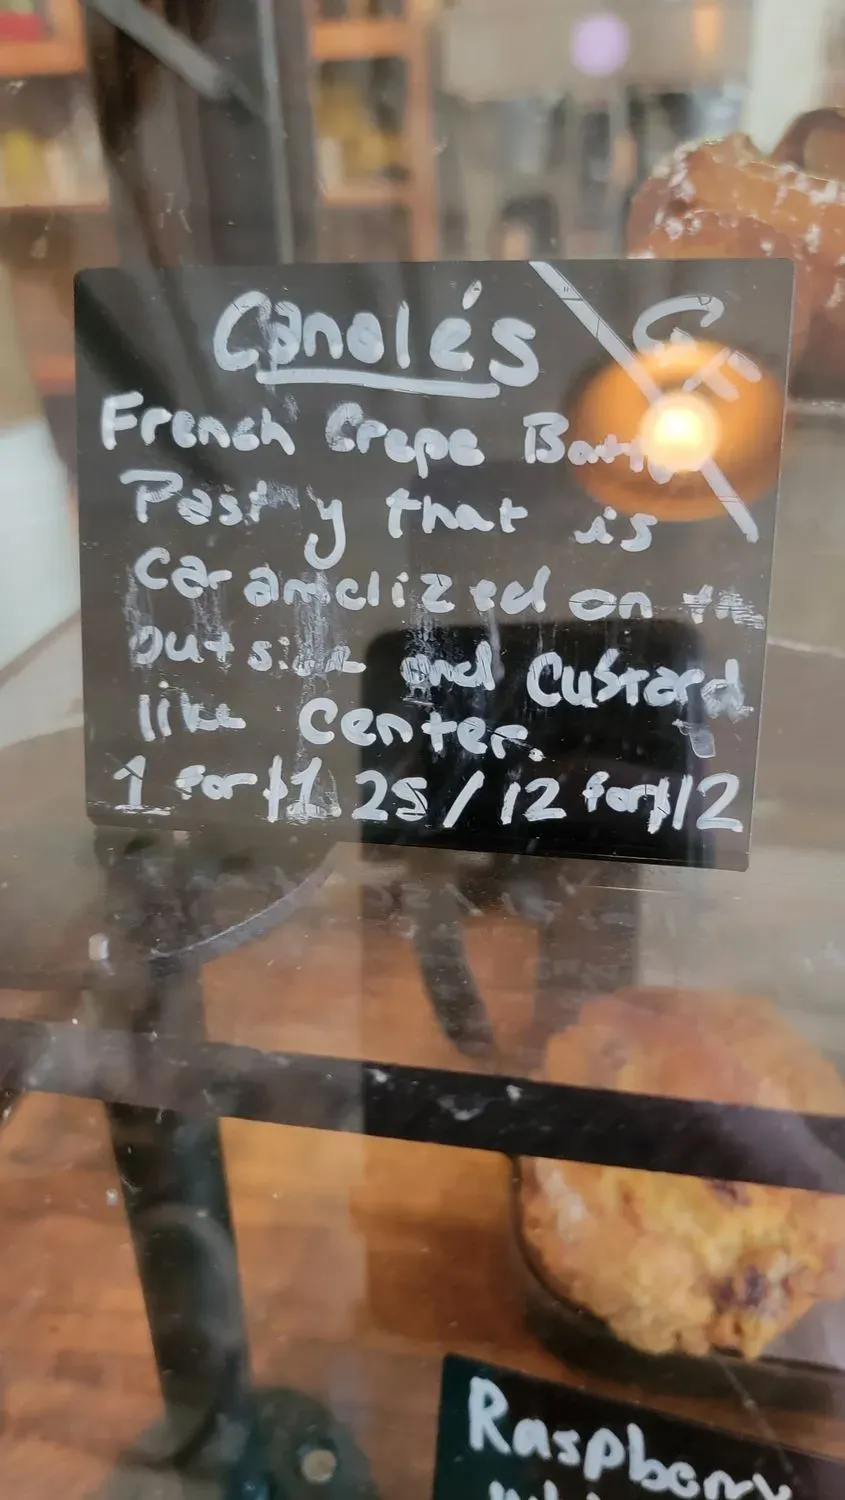 Canelés
GF
French Crepe Batter
Pastry that is
caramelized on the
outside and Custard
like center.
1 for $1.25 / 12 for $12
Raspberry